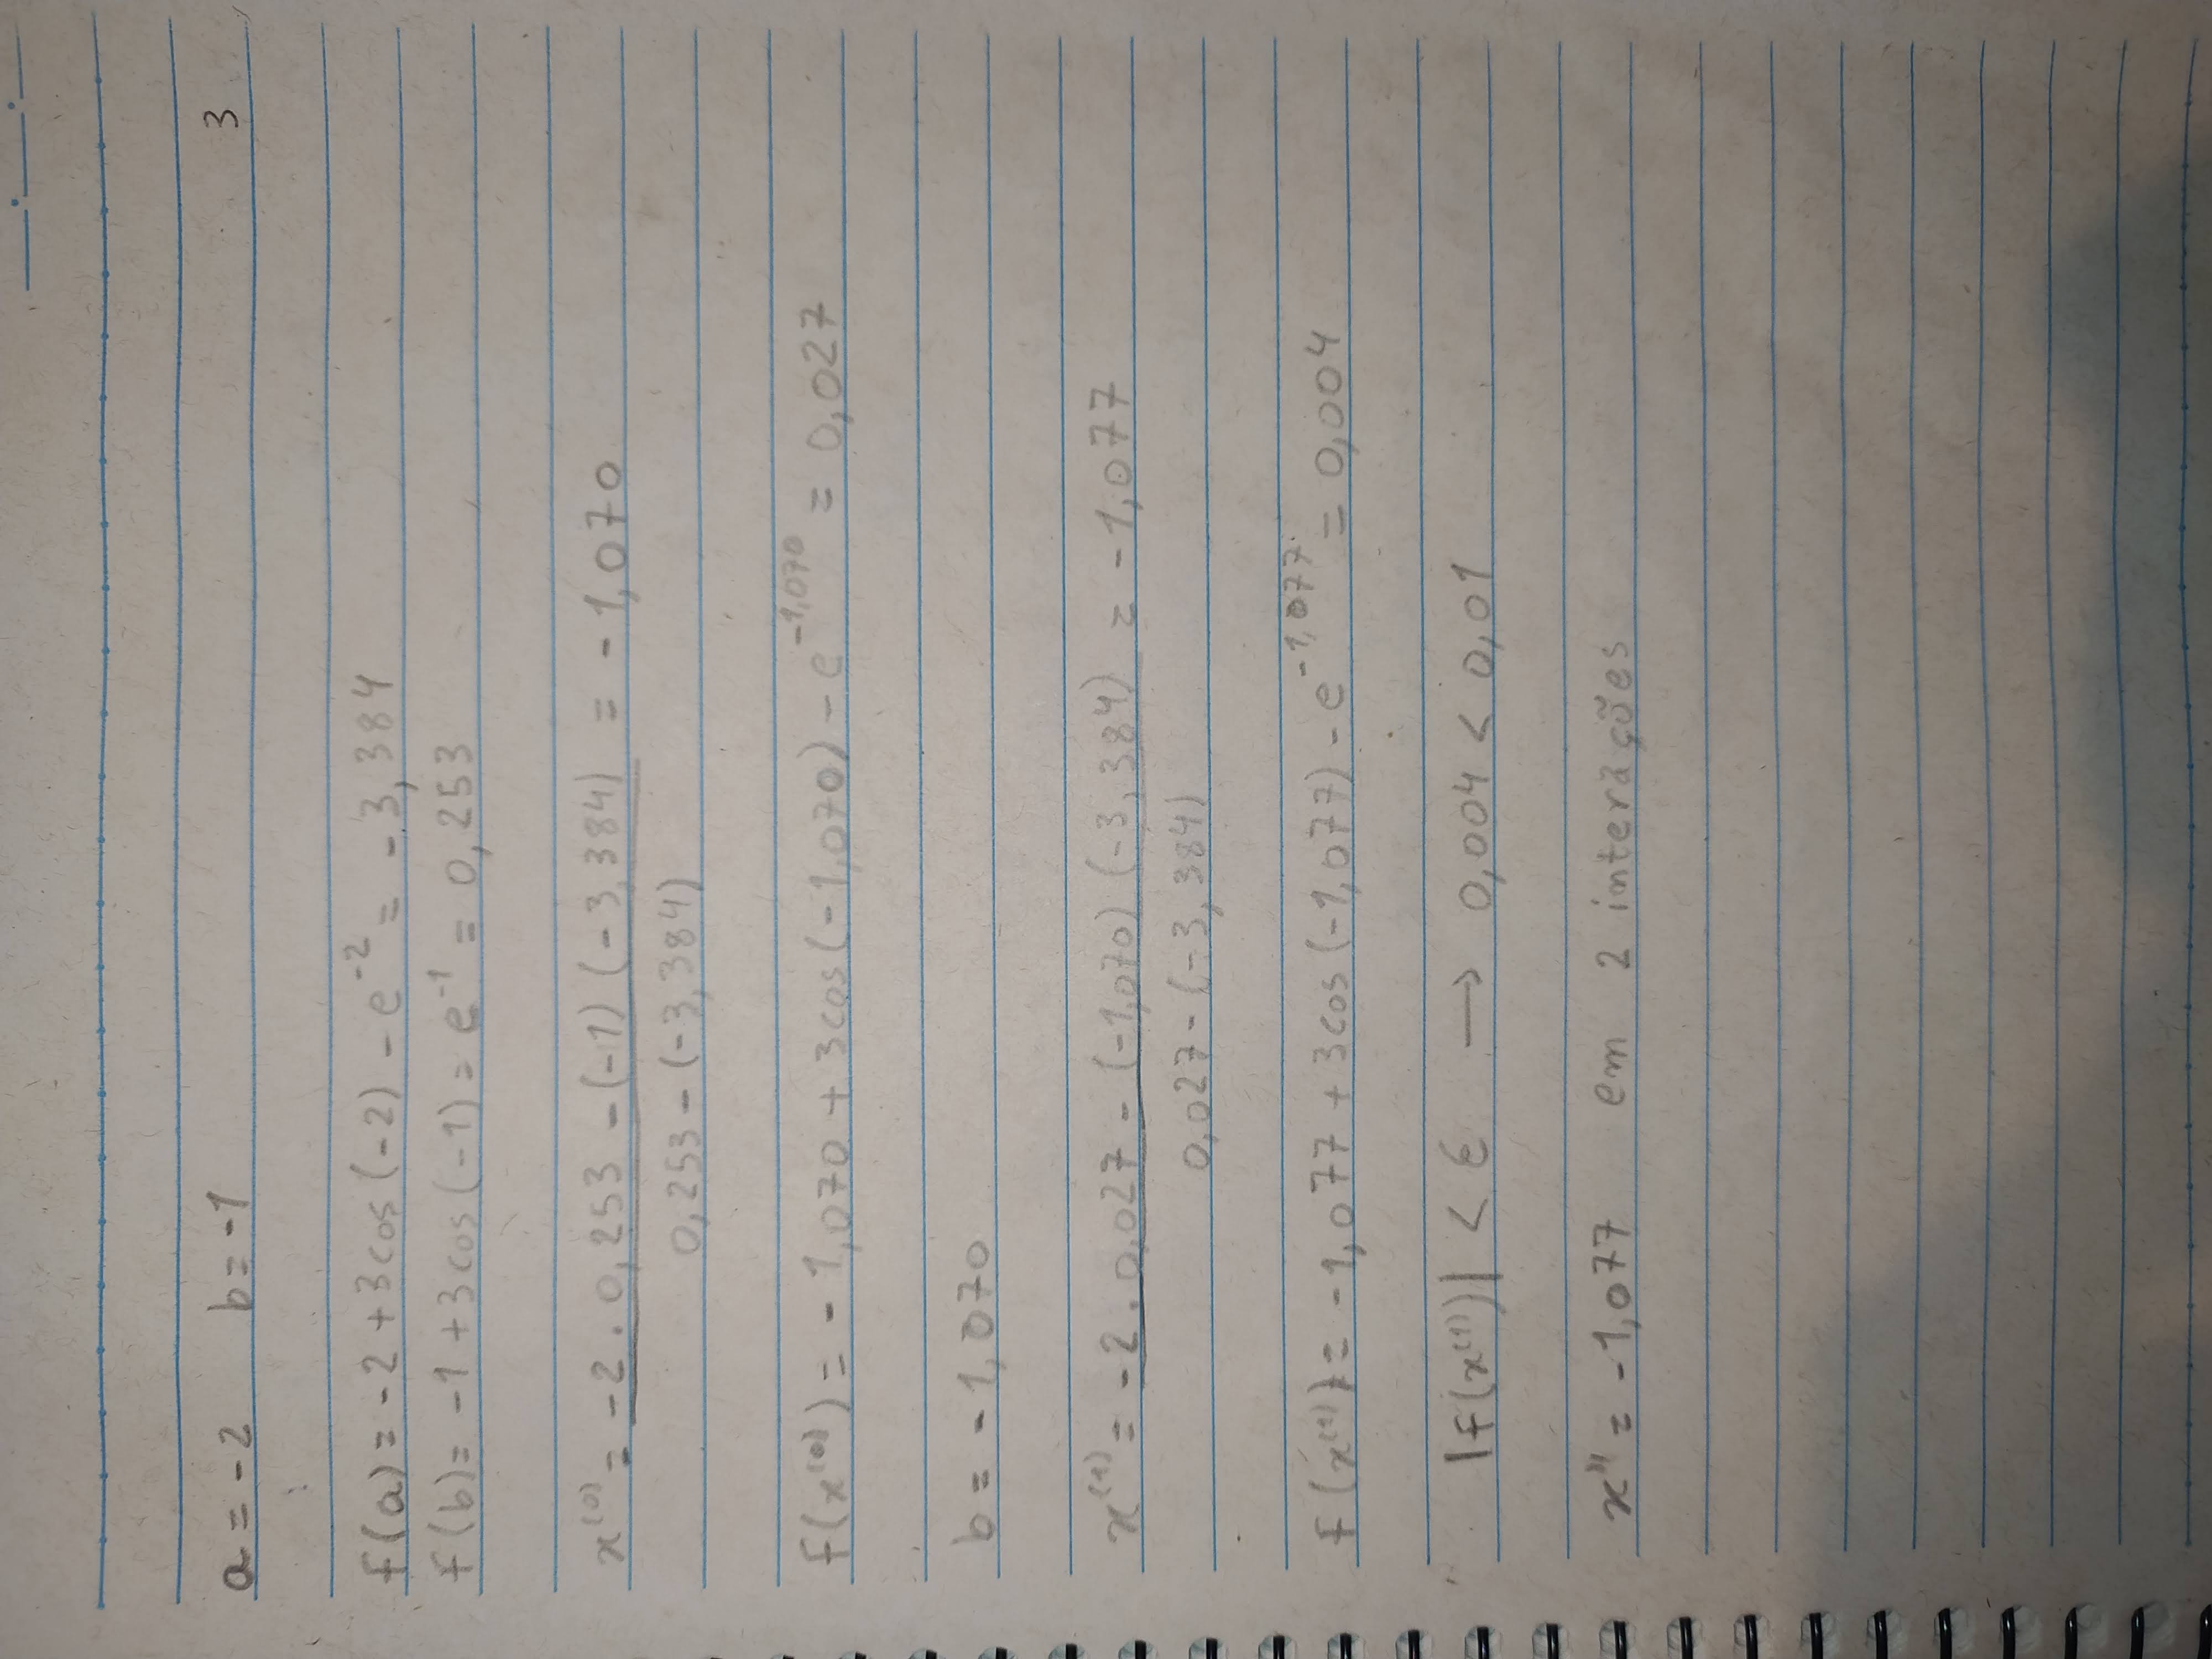 a = -2 b = -1 3
f(a) = -2 + 3cos(-2) - e^-2 = -3,384
f(b) = -1 + 3cos(-1) = e^-1 = 0,253
x^(0) = -2 . 0,253 - (-1) (-3,384) = -1,070
0,253 - (-3,384)
f(x^(0)) = -1,070 + 3cos(-1,070) - e^-1,070 = 0,027
b = -1,070
x^(1) = -2 . 0,027 - (-1,070) (-3,384) = -1,077
0,027 - (-3,384)
f(x^(1)) = -1,077 + 3cos(-1,077) - e^-1,077 = 0,004
|f(x^(1))| < ε → 0,004 < 0,01
x'' = -1,077 em 2 interações